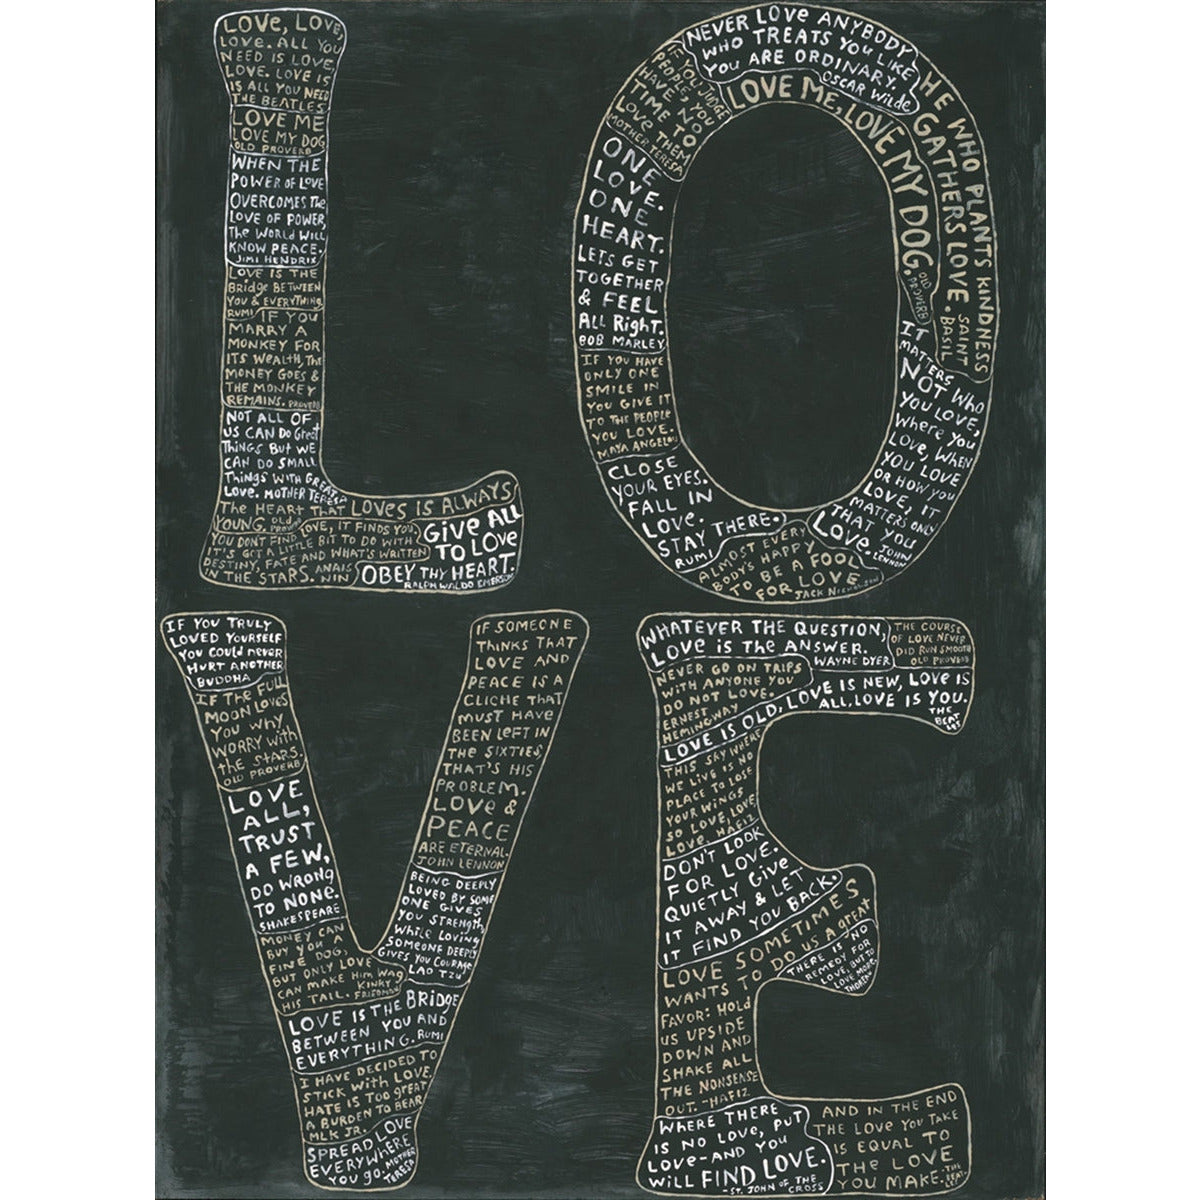 LOVE, LOVE,
LOVE. ALL YOU
NEED IS LOVE,
LOVE. LOVE IS
IS ALL YOU NEED
THE BEATLES
LOVE ME
LOVE MY DOG
OLD PROVERB
WHEN THE
POWER OF LOVE
OVERCOMES THE
LOVE OF POWER,
THE WORLD WILL
KNOW PEACE.
JIMI HENDRIX
LOVE IS THE
BRIDGE BETWEEN
YOU & EVERYTHING
RUMI
IF YOU
MARRY A
MONKEY FOR
ITS WEALTH, THE
MONEY GOES &
THE MONKEY
REMAINS. PROVERB
NOT ALL OF
US CAN DO GREAT
THINGS BUT WE
CAN DO SMALL
THINGS WITH GREAT
LOVE. MOTHER TERESA
THE HEART THAT LOVES IS ALWAYS
YOUNG. OLD PROVERB
LOVE, IT FINDS YOU.
YOU DON'T FIND
IT'S GOT A LITTLE BIT TO DO WITH
DESTINY, FATE AND WHAT'S WRITTEN
IN THE STARS. ANAIS NIN
GIVE ALL
TO LOVE
OBEY THY HEART.
RALPH WALDO EMERSON
NEVER LOVE ANYBODY
WHO TREATS YOU LIKE
YOU ARE ORDINARY.
OSCAR WILDE
HE WHO PLANTS KINDNESS
GATHERS LOVE. SAINT BASIL
IF YOU JUDGE
PEOPLE, YOU
HAVE NO
TIME TO
LOVE THEM
MOTHER TERESA
LOVE ME, LOVE MY DOG. OLD PROVERB
ONE
LOVE.
ONE
HEART.
LETS GET
TOGETHER
& FEEL
ALL RIGHT.
BOB MARLEY
IF YOU HAVE
ONLY ONE
SMILE IN
YOU GIVE IT
TO THE PEOPLE
YOU LOVE.
MAYA ANGELOU
CLOSE
YOUR EYES.
FALL IN
LOVE.
STAY THERE.
RUMI
ALMOST EVERY
BODY'S HAPPY
TO BE A FOOL
FOR LOVE
JACK NICHOLSON
IT
MATTERS
NOT WHO
YOU LOVE,
WHERE YOU
LOVE, WHEN
YOU LOVE
OR HOW YOU
LOVE, IT
MATTERS ONLY
THAT YOU
LOVE. JOHN LENNON
IF YOU TRULY
LOVED YOURSELF
YOU COULD NEVER
HURT ANOTHER
BUDDHA
IF THE FULL
MOON LOVES
YOU WHY
WORRY WITH
THE STARS.
OLD PROVERB
LOVE
ALL,
TRUST
A FEW,
DO WRONG
TO NONE.
SHAKESPEARE
MONEY CAN
BUY YOU A
FINE DOG,
BUT ONLY LOVE
CAN MAKE HIM WAG
HIS TAIL. KINKY FRIEDMAN
IF SOMEONE
THINKS THAT
LOVE AND
PEACE IS A
CLICHE THAT
MUST HAVE
BEEN LEFT IN
THE SIXTIES,
THAT'S HIS
PROBLEM.
LOVE &
PEACE
ARE ETERNAL.
JOHN LENNON
BEING DEEPLY
LOVED BY SOME
ONE GIVES
YOU STRENGTH
WHILE LOVING
SOMEONE DEEPLY
GIVES YOU COURAGE
LAO TZU
LOVE IS THE BRIDGE
BETWEEN YOU AND
EVERYTHING. RUMI
I HAVE DECIDED TO
STICK WITH LOVE.
HATE IS TOO GREAT
A BURDEN TO BEAR
MLK JR.
SPREAD LOVE
EVERYWHERE
YOU GO. MOTHER TERESA
WHATEVER THE QUESTION,
LOVE IS THE ANSWER.
WAYNE DYER
THE COURSE
OF LOVE NEVER
DID RUN SMOOTH
OLD PROVERB
NEVER GO ON TRIPS
WITH ANYONE YOU
DO NOT LOVE.
ERNEST
HEMINGWAY
LOVE IS OLD, LOVE IS NEW, LOVE IS
ALL, LOVE IS YOU.
THE BEATLES
THIS SKY WHERE
WE LIVE IS NO
PLACE TO LOSE
YOUR WINGS
SO LOVE, LOVE,
LOVE. HAFIZ
DON'T LOOK
FOR LOVE.
QUIETLY GIVE
IT AWAY & LET
IT FIND YOU BACK.
LOVE SOMETIMES
WANTS TO DO US A GREAT
FAVOR: HOLD
US UPSIDE
DOWN AND
SHAKE ALL
THE NONSENSE
OUT. -HAFIZ
THERE IS NO
REMEDY FOR
LOVE, BUT TO
LOVE MORE.
THOREAU
WHERE THERE
IS NO LOVE, PUT
LOVE-AND YOU
WILL FIND LOVE.
-ST. JOHN OF THE CROSS
AND IN THE END
THE LOVE YOU TAKE
IS EQUAL TO
THE LOVE
YOU MAKE. -THE BEATLES